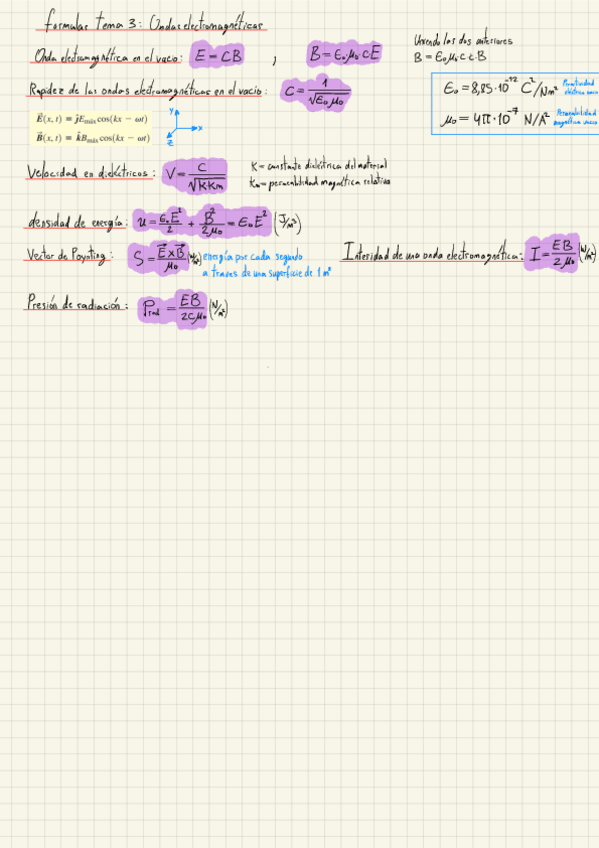 formulas tema 3: Ondas electromagnéticas
Onda electromagnética en el vacío: E = CB , B = ε₀μ₀cE
Uniendo las dos anteriores
B = ε₀μ₀c·c·B
Rapidez de las ondas electromagnéticas en el vacío: C = 1/√ε₀μ₀
ε₀ = 8,85·10⁻¹² C²/Nm² Permitividad eléctrica vacío
μ₀ = 4π·10⁻⁷ N/A² Permeabilidad magnética vacío
E⃗(x, t) = ĵE_máx cos(kx − ωt)
B⃗(x, t) = k̂B_máx cos(kx − ωt)
y
x
z
Velocidad en dieléctricos: V = C/√KKm
K = constante dieléctrica del material
Km = permeabilidad magnética relativa
densidad de energía: u = ε₀E²/2 + B²/2μ₀ = ε₀E² (J/m³)
Vector de Poynting: S = E⃗×B⃗/μ₀ (W/m²) energía por cada segundo
a traves de una superficie de 1 m²
Intesidad de una onda electromagnética: I = EB/2μ₀ (W/m²)
Presión de radiación: Prad = EB/2Cμ₀ (N/m²)